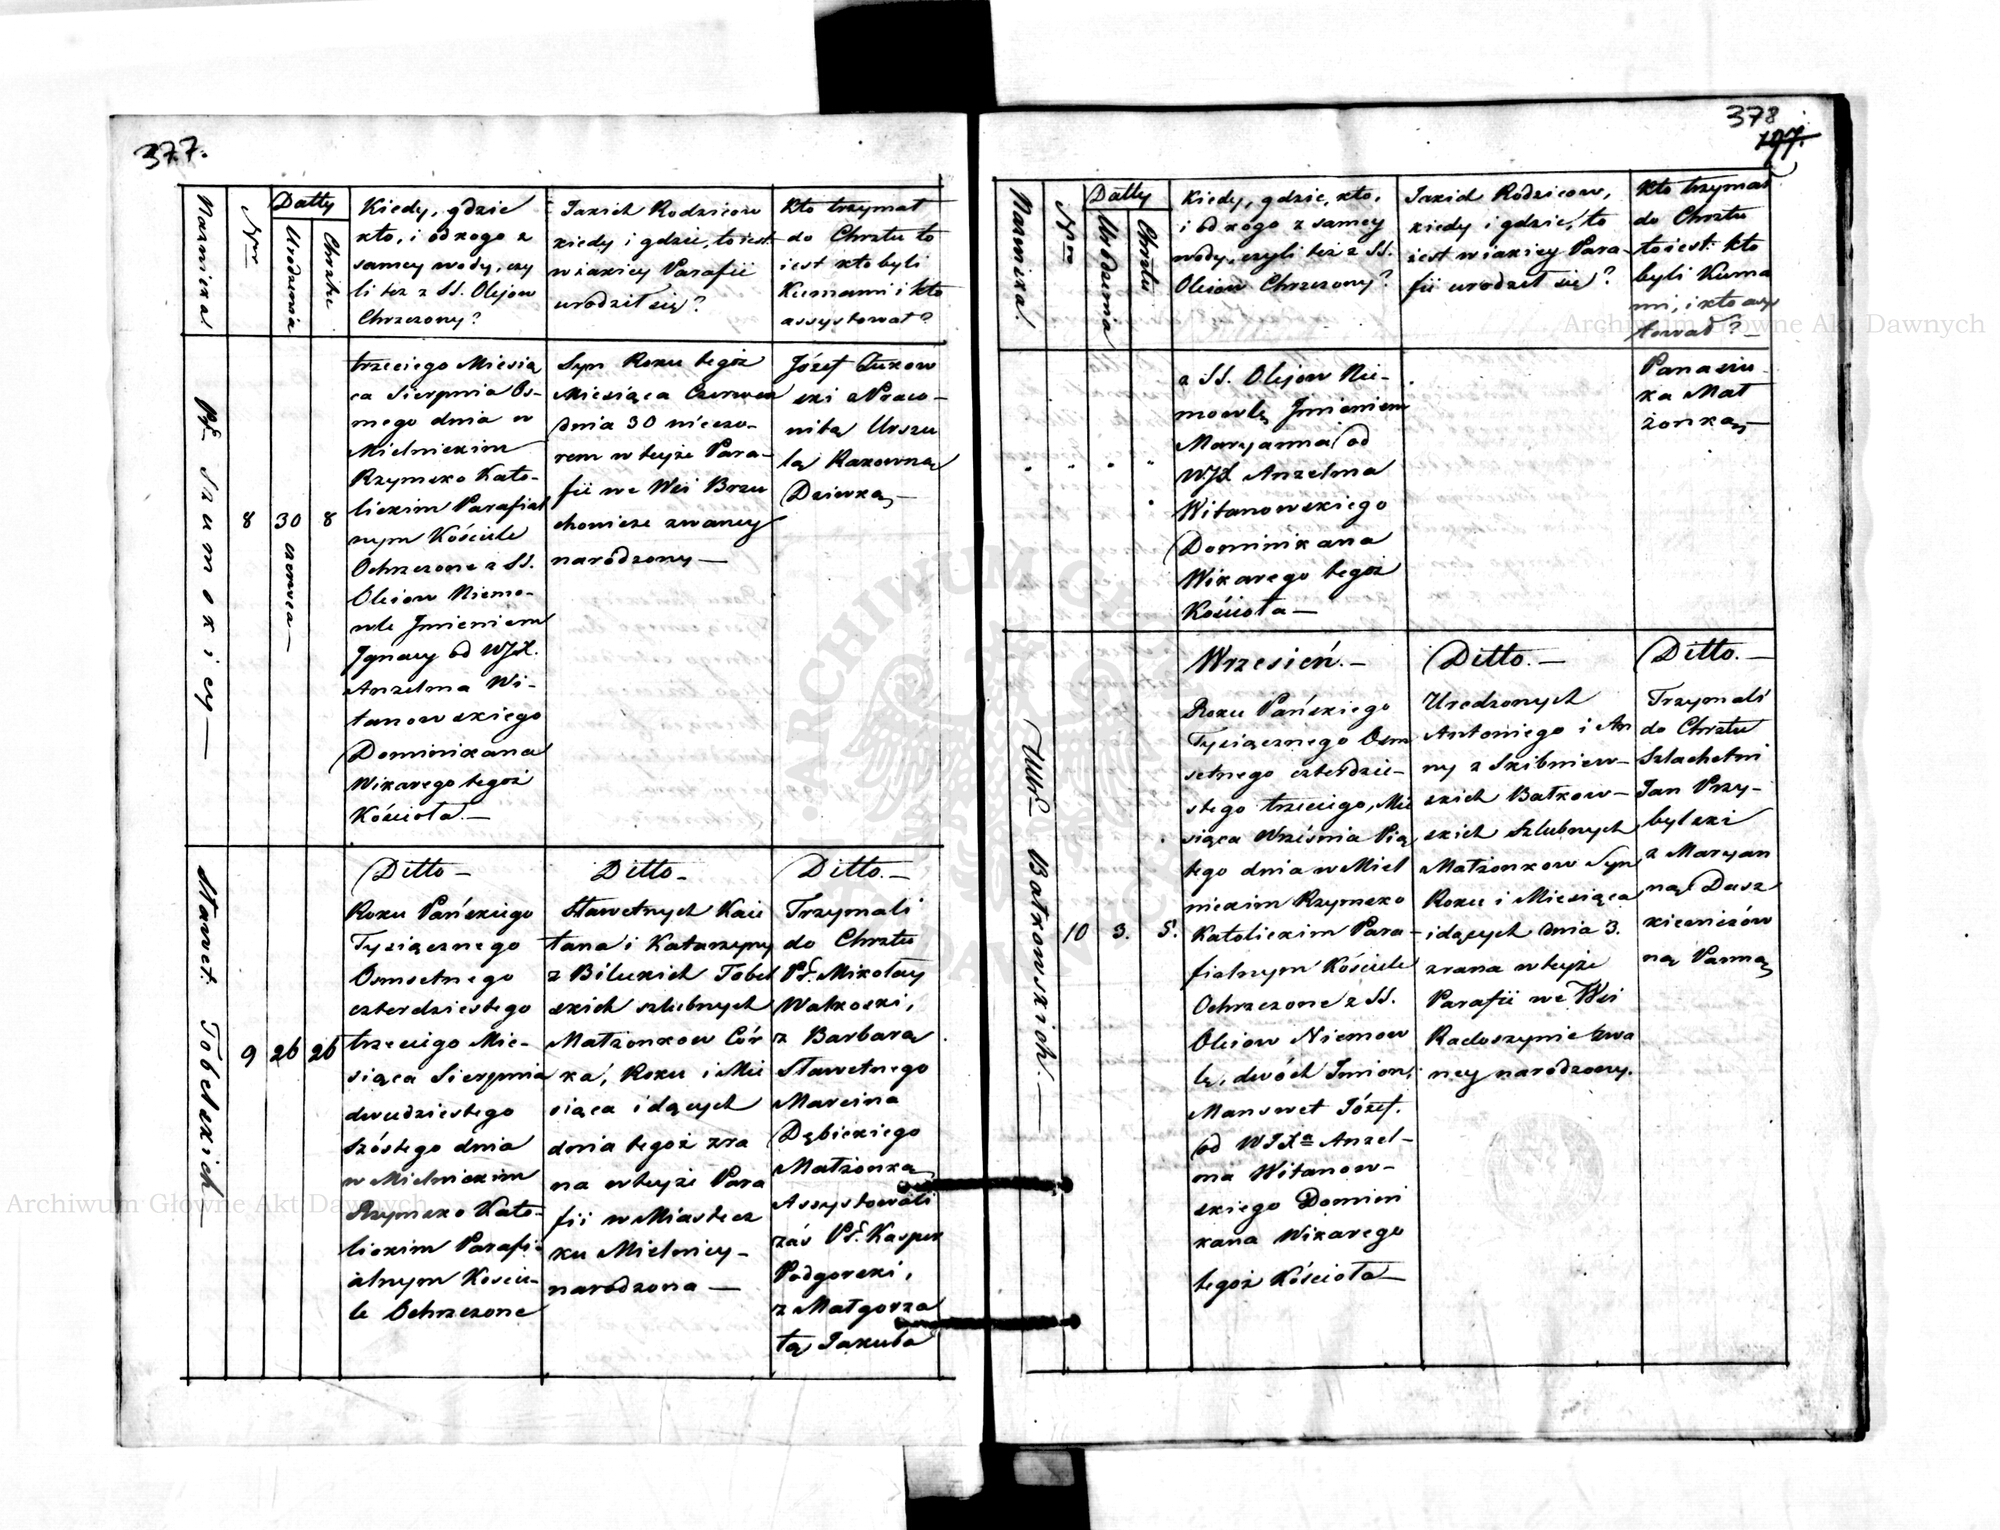 377.
Nazwiska
Nro
Datty
Urodzenia
Chrztu
Kiedy, gdzie
kto, i od kogo z
samey wody, czy
li też z SS. Olejow
Chrzczony?
Jakich Rodzicow
kiedy i gdzie, to iest
w iakiey Parafii
urodził się?
Kto trzymał
do Chrztu to
iest kto byli
Kumami i kto
assystował?
Pć Szumskiey
8
30
czerwca
8
trzeciego Miesią
ca Sierpnia Os-
mego dnia w
Mielnickim
Rzymsko Kato-
lickim Parafial
nym Kościele
Ochrzczone z SS.
Oleiow Niemo-
wle Jmieniem
Jgnacy od WJX.
Anzelma Wi-
tanowskiego
Dominikana
Wikarego tegoż
Kościoła.—
Syn Roku tegoż
Miesiąca Czerwca
dnia 30 wieczo-
rem w teyże Para-
fii we Wsi Brzu
chowicze zwaney
narodzony—
Józef Żukow
ski z Praco-
witą Urszu
lą Rakowną
Dziewką,—
Sławet: Tobolskich—
9
26
26
Ditto—
Roku Pańskiego
Tysiącznego
Osmsetnego
czterdziestego
trzeciego Mie-
siąca Sierpnia
dwudziestego
szóstego dnia
w Mielnickim
Rzymsko Kato-
lickim Parafi-
alnym Koście-
le Ochrzczone
Ditto—
Sławetnych Kaie
tana i Katarzyny
z Biluckich Tobol
skich szlubnych
Małżonkow Cór
ka, Roku i Mie
siąca idących
dnia tegoż zra
na w teyże Para
fii w Miastecz
ku Mielnicy—
narodzona—
Ditto.—
Trzymali
do Chrztu
Pć. Mikołay
Watkoski,
z Barbarą
Sławetnego
Marcina
Dębickiego
Małżonką
Assystowali
zaś Pć. Kasper
Podgorski,
z Małgorza
tą Jakuba
378
177.
Nazwiska.
Nro
Datty
Urodzenia
Chrztu
Kiedy, gdzie, kto,
i od kogo z samey
wody, czyli też z SS.
Oleiow Chrzczony?
Jakich Rodzicow,
kiedy i gdzie, to
iest w iakiey Para-
fii urodził się?
Kto trzymał
do Chrztu
to iest: kto
byli Kuma
mi, i kto asys
tował?—
z SS. Olejow Nie-
mowlę Jmieniem
Maryanna od
WJX Anzelma
Witanowskiego
Dominikana
Wikarego tegoż
Kościoła—
Panasiu-
ka Mał
żonką,—
Batkowskich—
10
3.
5.
Wrzesień.—
Roku Pańskiego
Tysiącznego Osm
setnego czterdzie-
stego trzeciego, Mie
siąca Września Pią
tego dnia w Miel
nickim Rzymsko
Katolickim Para-
fialnym Kościele
Ochrzczone z SS.
Oleiow Niemow
lę, dwóch Imion,
Manswet Józef.
od WJXa Anzel-
ma Witanow-
skiego Domini
kana Wikarego
tegoż Kościoła—
Ditto.—
Urodzonych
Antoniego i An
ny z Skibniew-
skich Batkow-
skich Szlubnych
Małżonkow Syn
Roku i Miesiąca
idących dnia 3.
zrana w teyże
Parafii we Wsi
Radoszynie zwa
ney narodzony.
Ditto.—
Trzymali
do Chrztu
Szlachetni
Jan Przy-
bylski
z Maryan
ną Dasz
kiewiczów
ną Panną
Archiwum Główne Akt Dawnych
Archiwum Główne Akt Dawnych